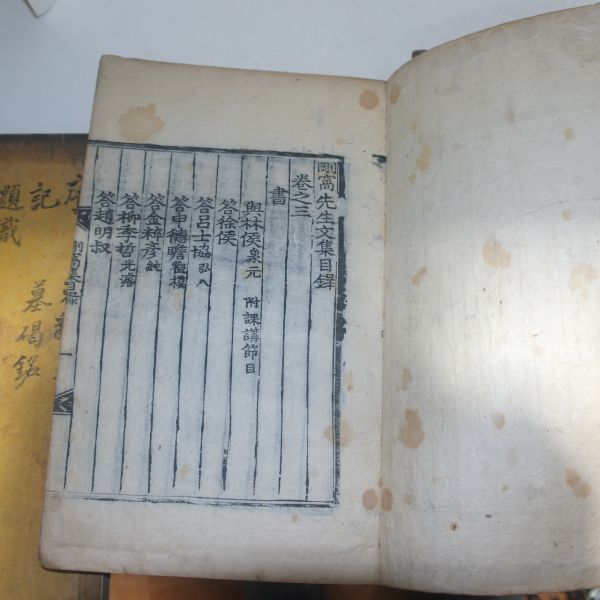 剛窩先生文集目錄
卷之三
書
與林侯㒶元 附課講節目
答徐侯
答呂士協 弘八
答申德瞻 觀模
答金粹彥 純
答柳季哲 光濬
答趙明叔
剛窩集目錄
記
題識
墓碣銘